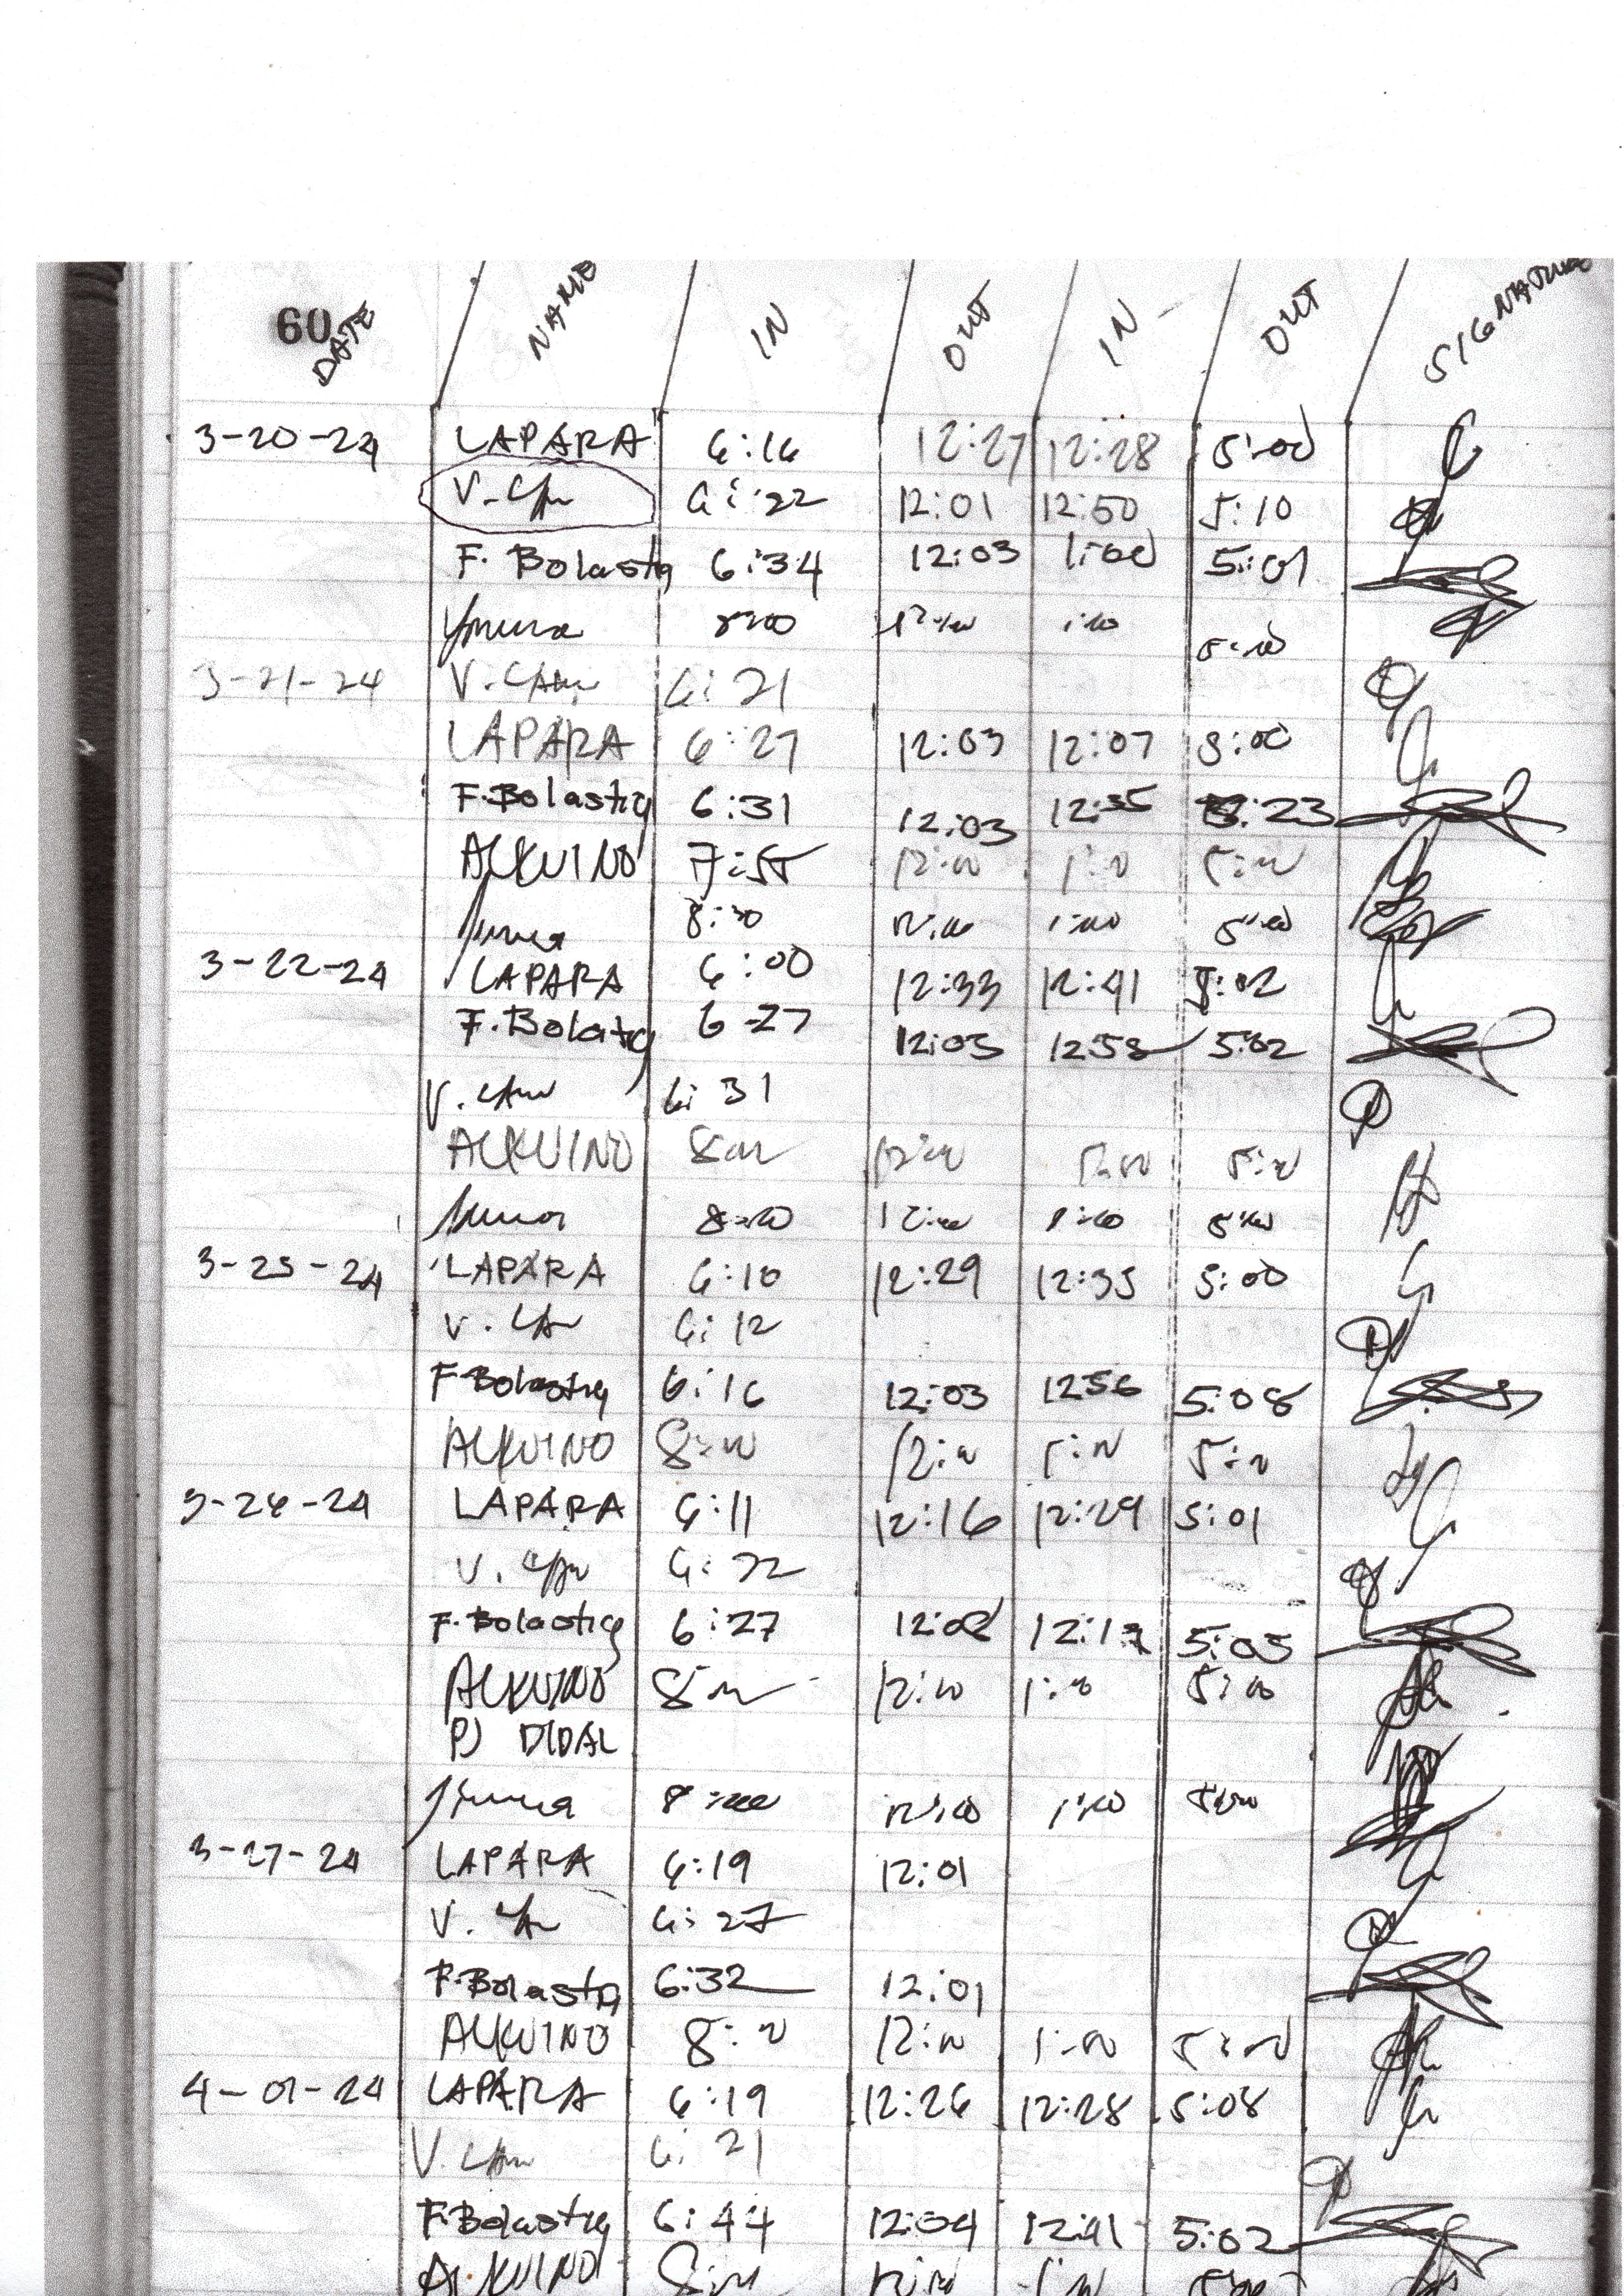 60
DATE NAME IN OUT IN OUT SIGNATURE
3-20-24 LAPARA 6:16 12:27 12:28 5:00
V. 6:22 12:01 12:50 5:10
F. Bolastig 6:34 12:03 1:00 5:01
8:00 12:00 1:00 5:00
3-21-24 V. 6:21
LAPARA 6:27 12:03 12:07 5:00
F. Bolastig 6:31 12:03 12:35 5:23
ALKUINO 7:55 12:00 1:00 5:00
8:00 12:00 1:00 5:00
3-22-24 LAPARA 6:00 12:33 12:41 5:02
F. Bolatig 6:27 12:03 12:58 5:02
V. 6:31
ALKUINO 8:00 12:00 5:00
8:00 12:00 1:00 5:00
3-25-24 LAPARA 6:10 12:29 12:35 5:00
V. 6:12
F Bolastig 6:16 12:03 1256 5:08
ALKUINO 8:00 12:00 1:00 5:00
3-26-24 LAPARA 6:11 12:16 12:29 5:01
V. 6:22
F. Bolastig 6:27 12:02 12:17 5:05
ALKUINO 8:00 12:00 1:00 5:00
PJ DIDAL
8:00 12:00 1:00 5:00
3-27-24 LAPARA 6:19 12:01
V. 6:27
F. Bolastig 6:32 12:01
ALKUINO 8:00 12:00 1:00 5:00
4-01-24 LAPARA 6:19 12:26 12:28 5:08
V. 6:21
F. Bolastig 6:44 12:04 12:41 5:02
ALKUINO 8:00 12:00 1:00